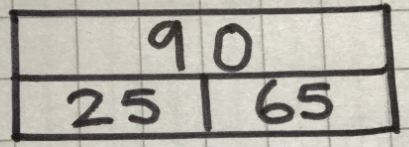 90
25 65